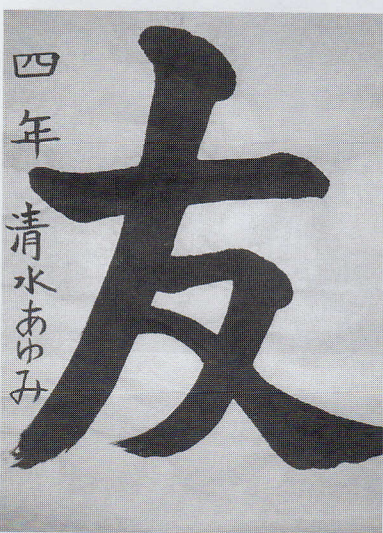 友
四年 清水あゆみ